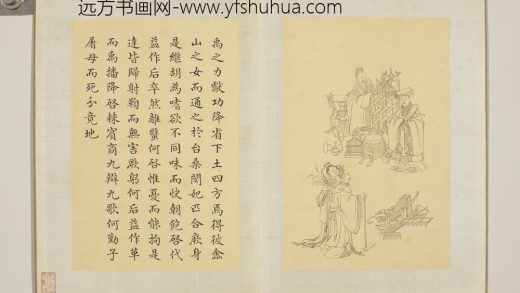 远方书画网-www.yfshuhua.com
禹之力獻功降省下土四方焉得彼嵞
山之女而通之於台桑閔妃匹合厥身
是繼胡為嗜欲不同味而快朝飽啓代
益作后卒然離蠥何啓惟憂而能拘是
達皆歸射鞠而無害厥躬何后益作革
而禹播降啓棘賓商九辯九歌何勤子
屠母而死分竟地